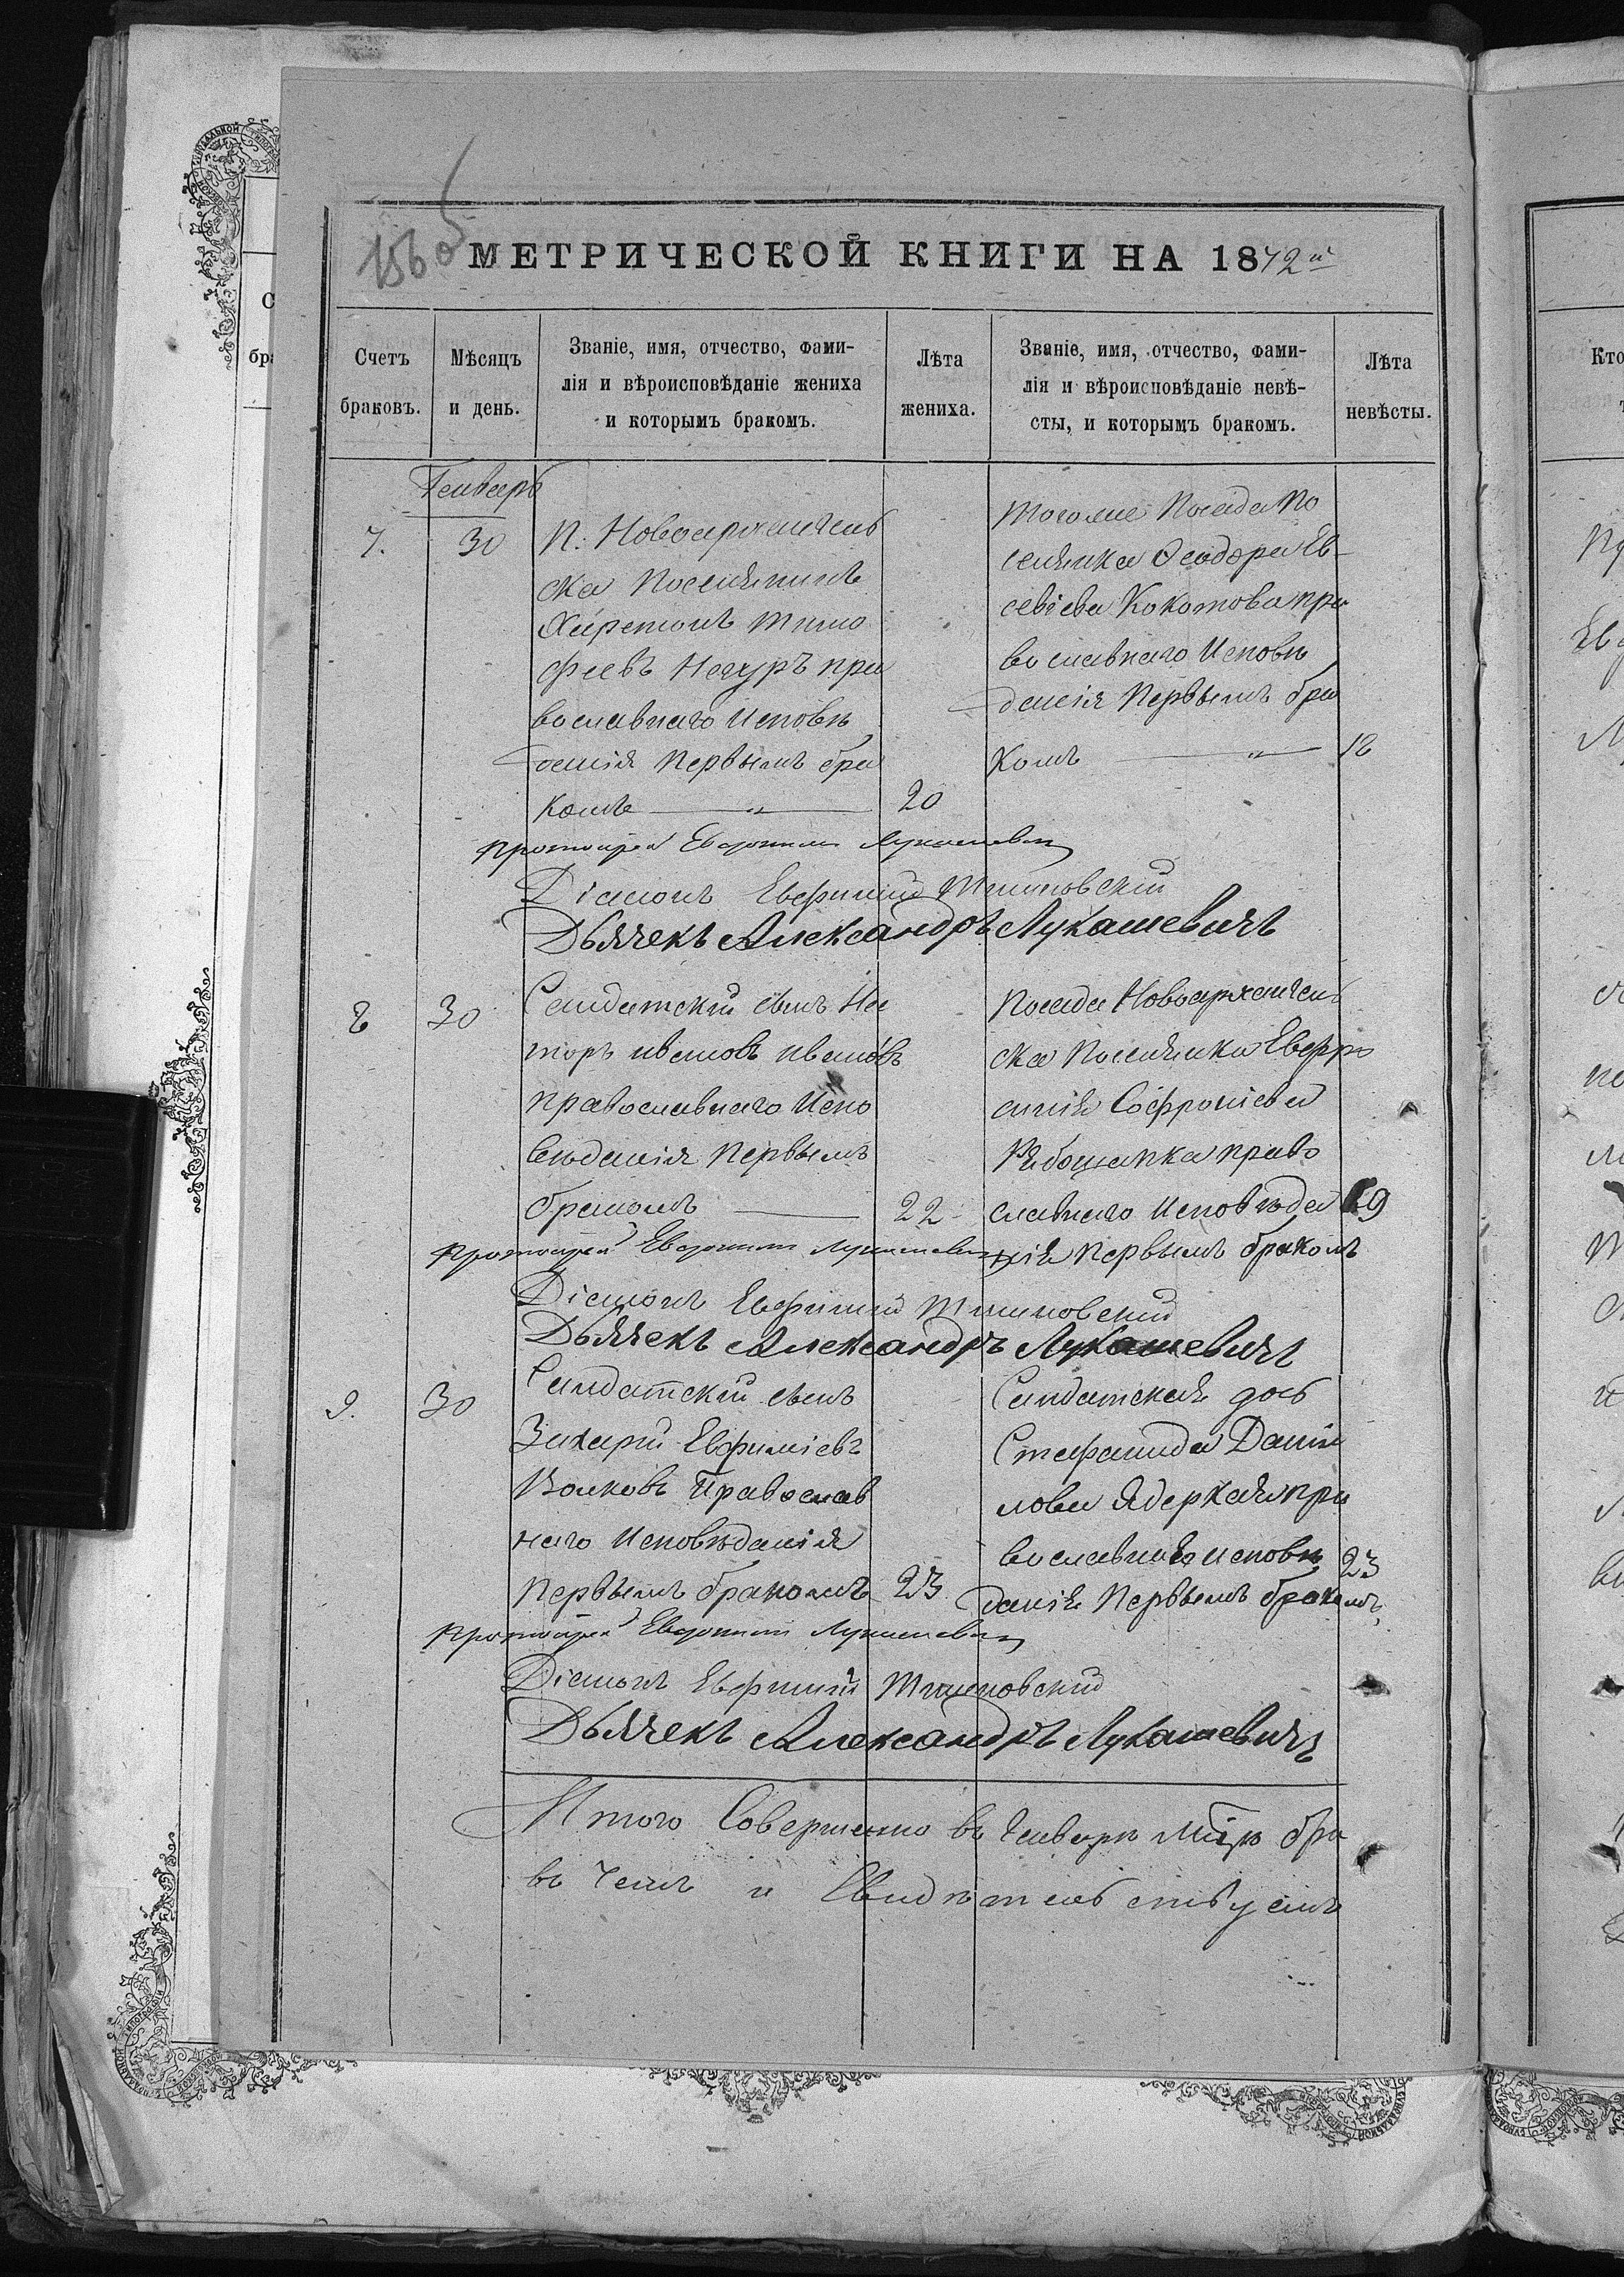 156 об
МЕТРИЧЕСКОЙ КНИГИ НА 1872й
Счетъ браковъ.
Мѣсяцъ и день.
Званіе, имя, отчество, фами-
лія и вѣроисповѣданіе жениха
и которымъ бракомъ.
Лѣта жениха.
Званіе, имя, отчество, фами-
лія и вѣроисповѣданіе невѣ-
сты, и которымъ бракомъ.
Лѣта невѣсты.
Генварь
7. 30
П. Новоархангель
ска Поселянинъ
Харитонъ Тимо
феевъ Нечуръ пра
вославнаго Исповѣ
данія Первымъ бра
комъ — „ — 20
Тогоже Посада По
селянка Феодора Ев
севіева Кокотова пра
вославнаго Исповѣ
данія Первымъ бра
комъ — „ — 18
Протоіерей Евдоким Лукашевич
Діаконъ Евфимій Тишковскій
Дьячекъ Александръ Лукашевичъ
8 30
Солдатскій сынъ Не
торъ Ивановъ Ивановъ
православнаго Испо
вѣданія Первымъ
бракомъ — 22
Посада Новоархангель
ска Поселянка Евфро
синія Софроніева
Рябошапка право
славнаго Исповѣда 19
нія Первымъ бракомъ
Протоіерей Евдоким Лукашевич
Діаконъ Евфимій Тишковскій
Дьячекъ Александръ Лукашевичъ
9. 30
Солдатскій сынъ
Захарій Евфиміевъ
Волковъ Православ
наго Исповѣданія
Первымъ бракомъ 23
Солдатская дочь
Стефанида Даніи
лова Ядеркая пра
вославнаго исповѣ 23
данія Первымъ бракомъ
Протоіерей Евдоким Лукашевич
Діаконъ Евфимій Тишковскій
Дьячекъ Александръ Лукашевичъ
Итого Совершено въ Генварѣ Мцѣ бра
въ чемъ и Свидѣтельствуемъ